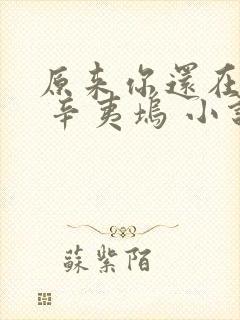 原来你還在
辛夷塢 小說
蘇紫陌